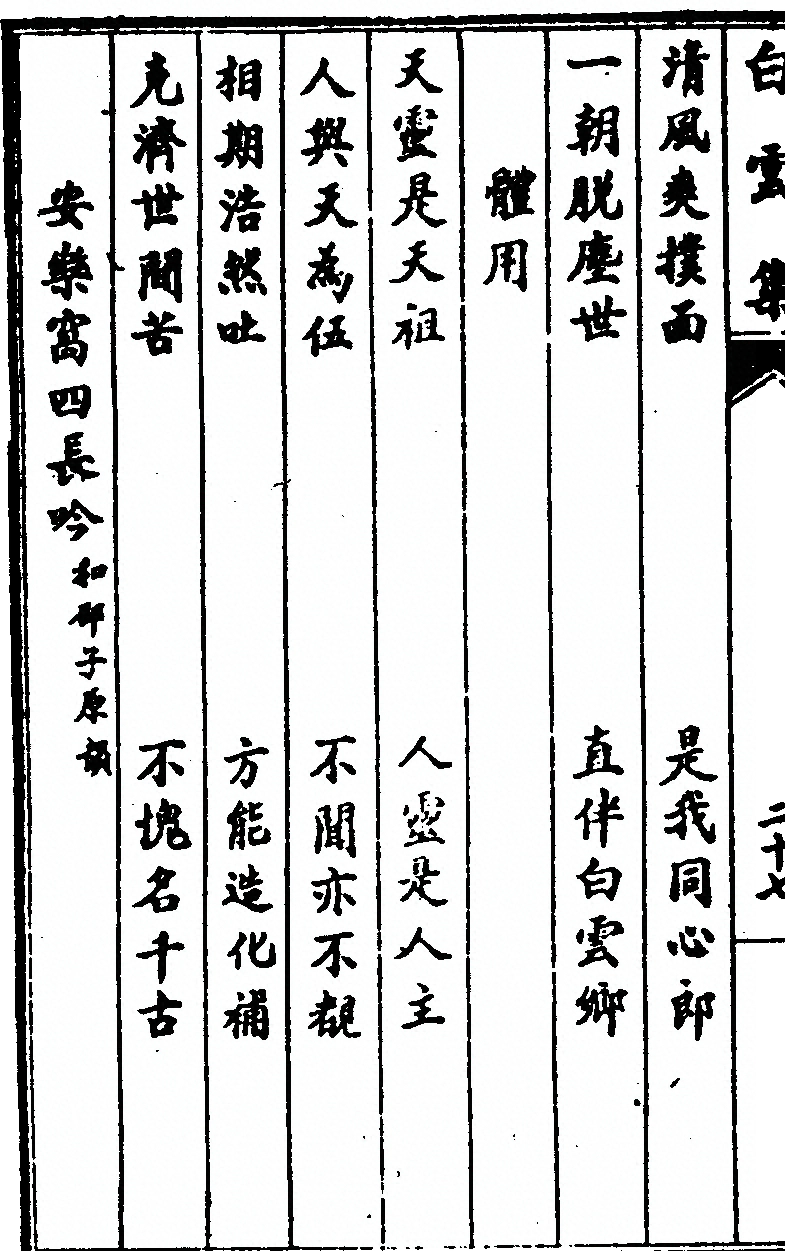 白雲集
二十七
清風爽撲面　是我同心郎
一朝脱塵世　直伴白雲鄉
體用
天靈是天祖　人靈是人主
人與天為伍　不聞亦不覩
相期浩然吐　方能造化補
克濟世間苦　不愧名千古
安樂窩四長吟 和邵子原韻